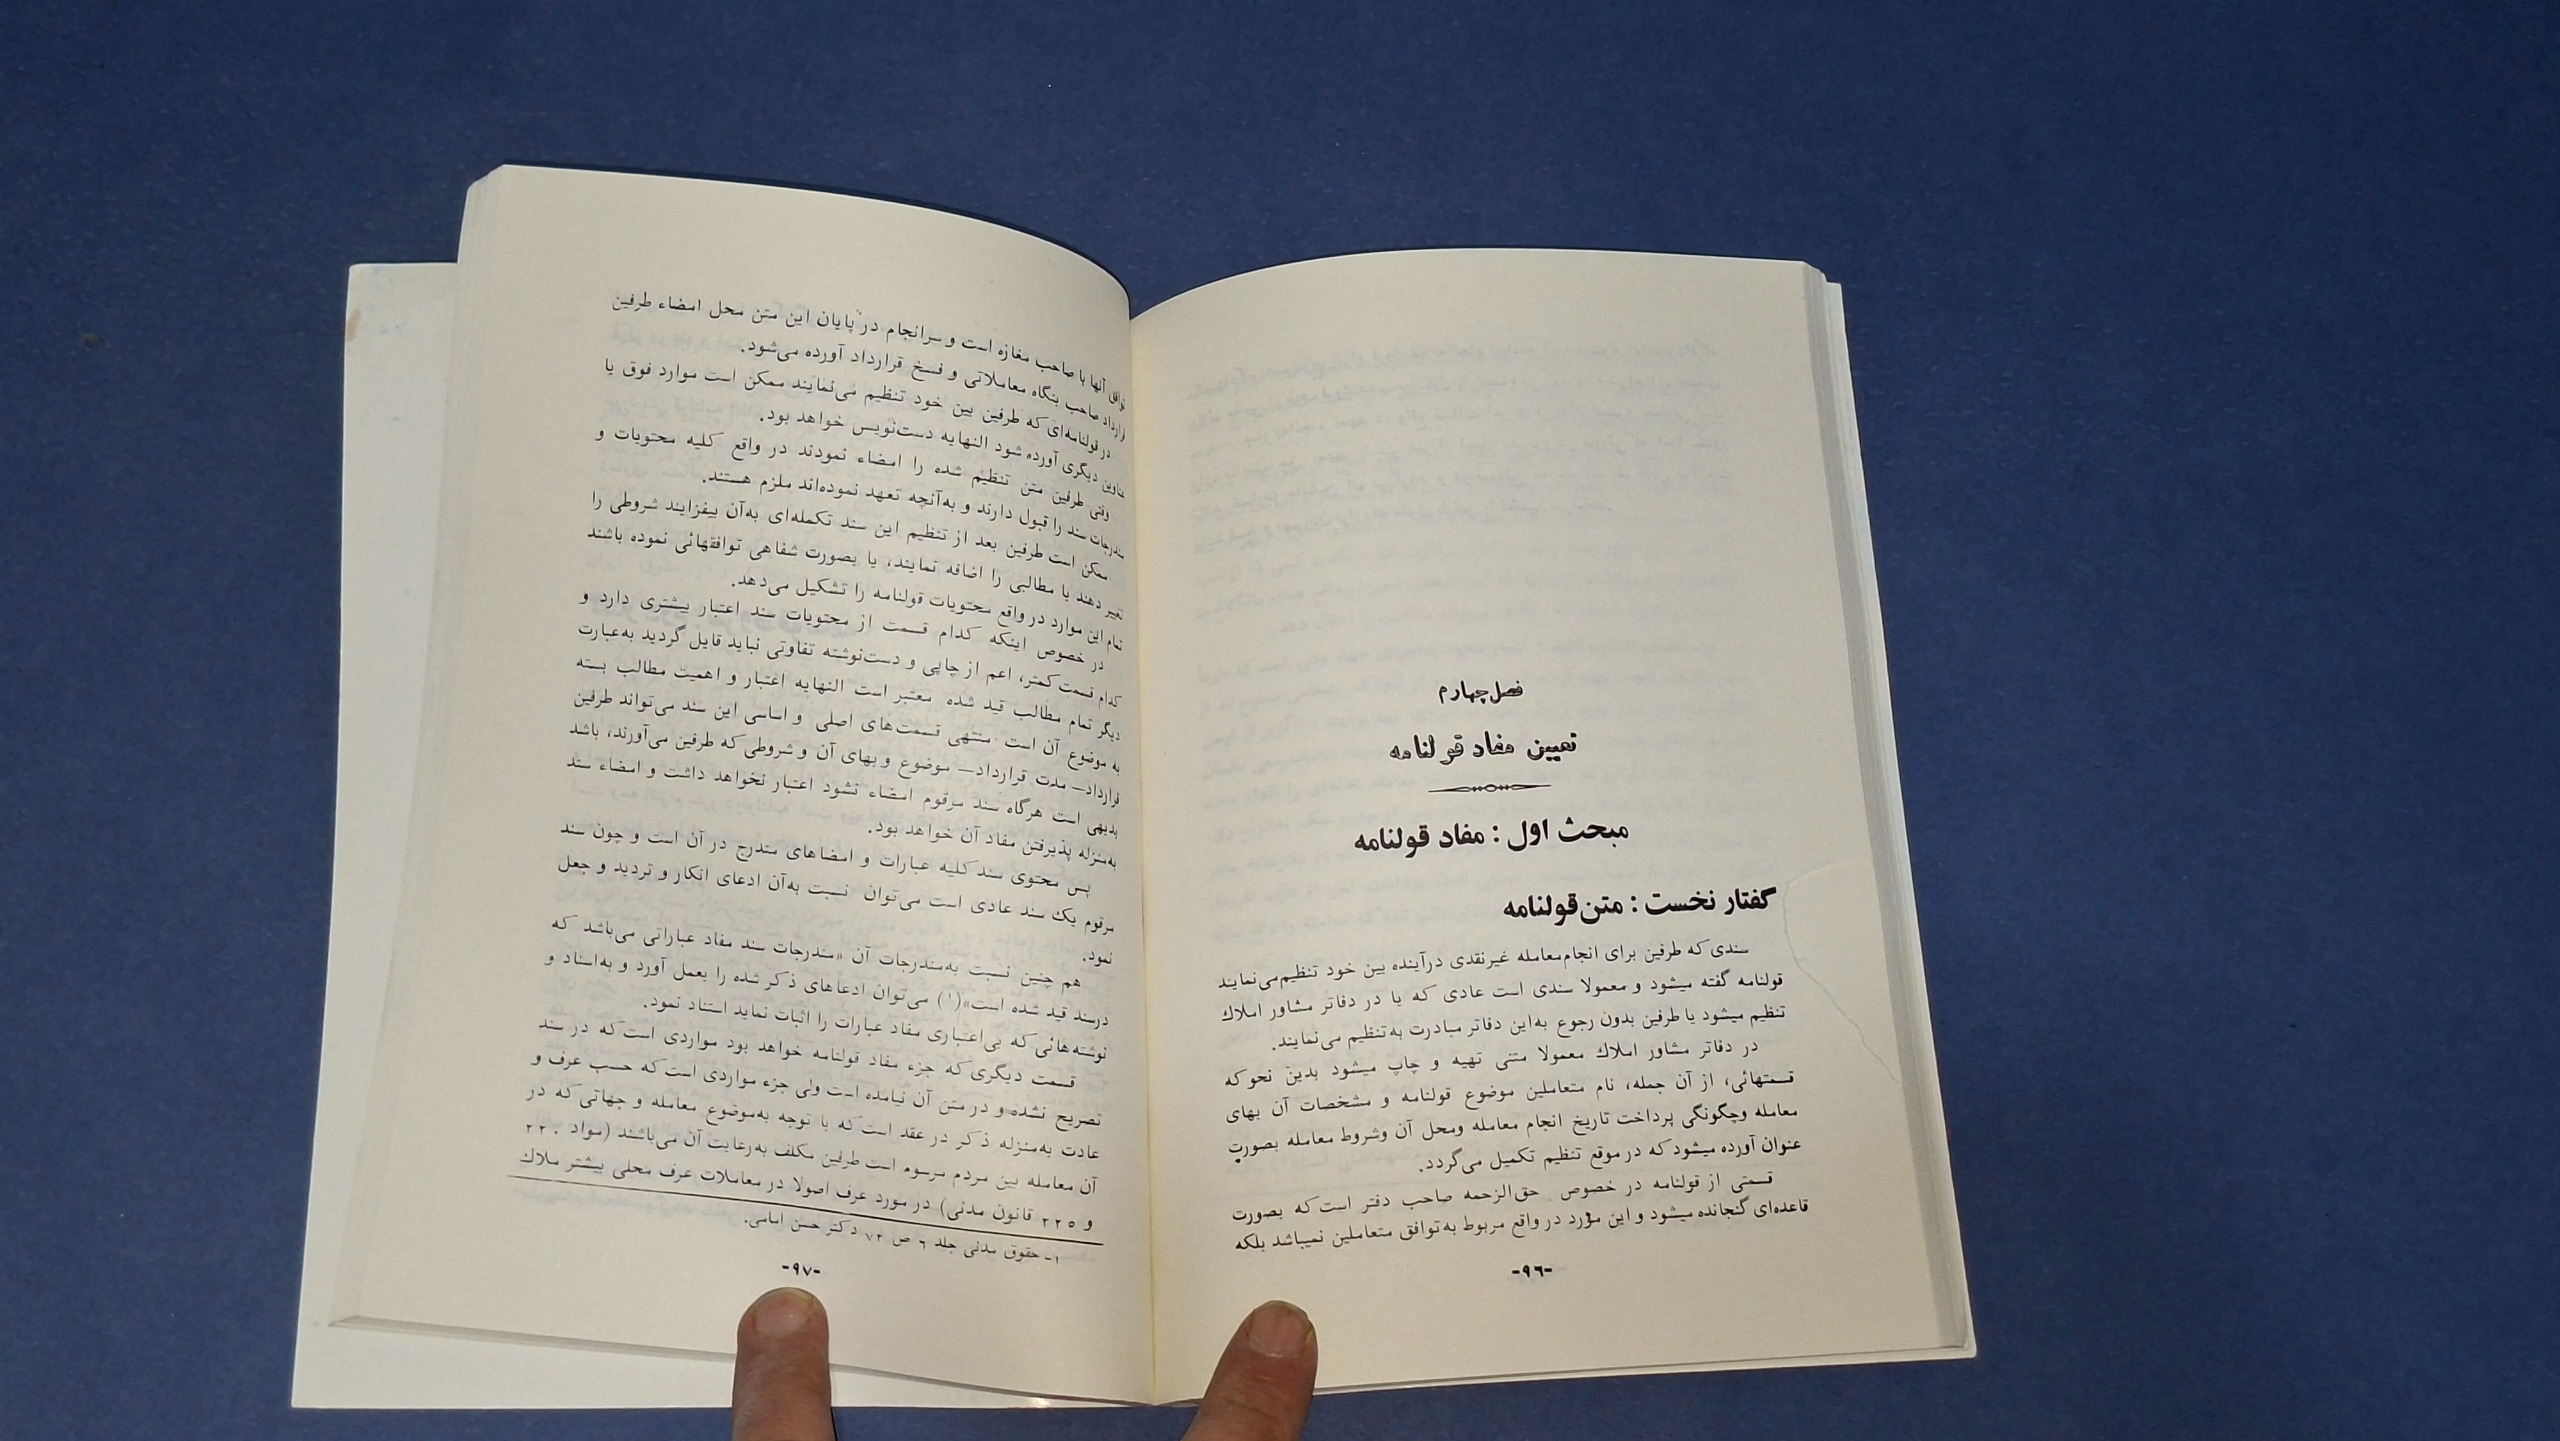 فصل چهارم
تعیین مفاد قولنامه
مبحث اول : مفاد قولنامه
گفتار نخست : متن قولنامه
سندی که طرفین برای انجام معامله غیرنقدی درآینده بین خود تنظیم می‌نمایند
قولنامه گفته میشود و معمولا سندی است عادی که یا در دفاتر مشاور املاك
تنظیم میشود یا طرفین بدون رجوع به‌این دفاتر مبادرت به‌تنظیم می‌نمایند.
در دفاتر مشاور املاك معمولا متنی تهیه و چاپ میشود بدین نحو که
قسمتهائی، از آن جمله، نام متعاملین موضوع قولنامه و مشخصات آن بهای
معامله وچگونگی پرداخت تاریخ انجام معامله ومحل آن وشروط معامله بصورت
عنوان آورده میشود که در موقع تنظیم تکمیل می‌گردد.
قسمتی از قولنامه در خصوص حق‌الزحمه صاحب دفتر است که بصورت
قاعده‌ای گنجانده میشود و این مورد در واقع مربوط به‌توافق متعاملین نمیباشد بلکه
-۹۶-
توافق آنها با صاحب مغازه است و سرانجام در پایان این متن محل امضاء طرفین
قرارداد صاحب بنگاه معاملاتی و فسخ قرارداد آورده می‌شود.
در قولنامه‌ای که طرفین بین خود تنظیم می‌نمایند ممکن است موارد فوق یا
عناوین دیگری آورده شود النهایه دست‌نویس خواهد بود.
وقتی طرفین متن تنظیم شده را امضاء نمودند در واقع کلیه محتویات و
مندرجات سند را قبول دارند و به‌آنچه تعهد نموده‌اند ملزم هستند.
ممکن است طرفین بعد از تنظیم این سند تکمله‌ای به‌آن بیفزایند شروطی را
تغییر دهند یا مطالبی را اضافه نمایند، یا بصورت شفاهی توافقهائی نموده باشند
تمام این موارد در واقع محتویات قولنامه را تشکیل می‌دهد.
در خصوص اینکه کدام قسمت از محتویات سند اعتبار بیشتری دارد و
کدام قسمت کمتر، اعم از چاپی و دست‌نوشته تفاوتی نباید قایل گردید به‌عبارت
دیگر تمام مطالب قید شده معتبر است النهایه اعتبار و اهمیت مطالب بسته
به موضوع آن است منتهی قسمت‌های اصلی و اساسی این سند می‌تواند طرفین
قرارداد— مدت قرارداد— موضوع و بهای آن و شروطی که طرفین می‌آورند، باشد
بدیهی است هرگاه سند مرقوم امضاء نشود اعتبار نخواهد داشت و امضاء سند
به‌منزله پذیرفتن مفاد آن خواهد بود.
پس محتوی سند کلیه عبارات و امضاهای مندرج در آن است و چون سند
مرقوم یك سند عادی است می‌توان نسبت به‌آن ادعای انکار و تردید و جعل
نمود.
هم چنین نسبت به‌مندرجات آن «مندرجات سند مفاد عباراتی می‌باشد که
درسند قید شده است»(۱) می‌توان ادعاهای ذکر شده را بعمل آورد و به‌اسناد و
نوشته‌هائی که بی‌اعتباری مفاد عبارات را اثبات نماید استناد نمود.
قسمت دیگری که جزء مفاد قولنامه خواهد بود مواردی است که در سند
تصریح نشده و در متن آن نیامده است ولی جزء مواردی است که حسب عرف و
عادت به‌منزله ذکر در عقد است که با توجه به‌موضوع معامله و جهاتی که در
آن معامله بین مردم مرسوم است طرفین مکلف به‌رعایت آن می‌باشند (مواد ۲۲۰
و ۲۲۵ قانون مدنی) در مورد عرف اصولا در معاملات عرف محلی بیشتر ملاك
۱ـ حقوق مدنی جلد ۶ ص ۷۲ دکتر حسن امامی.
-۹۷-